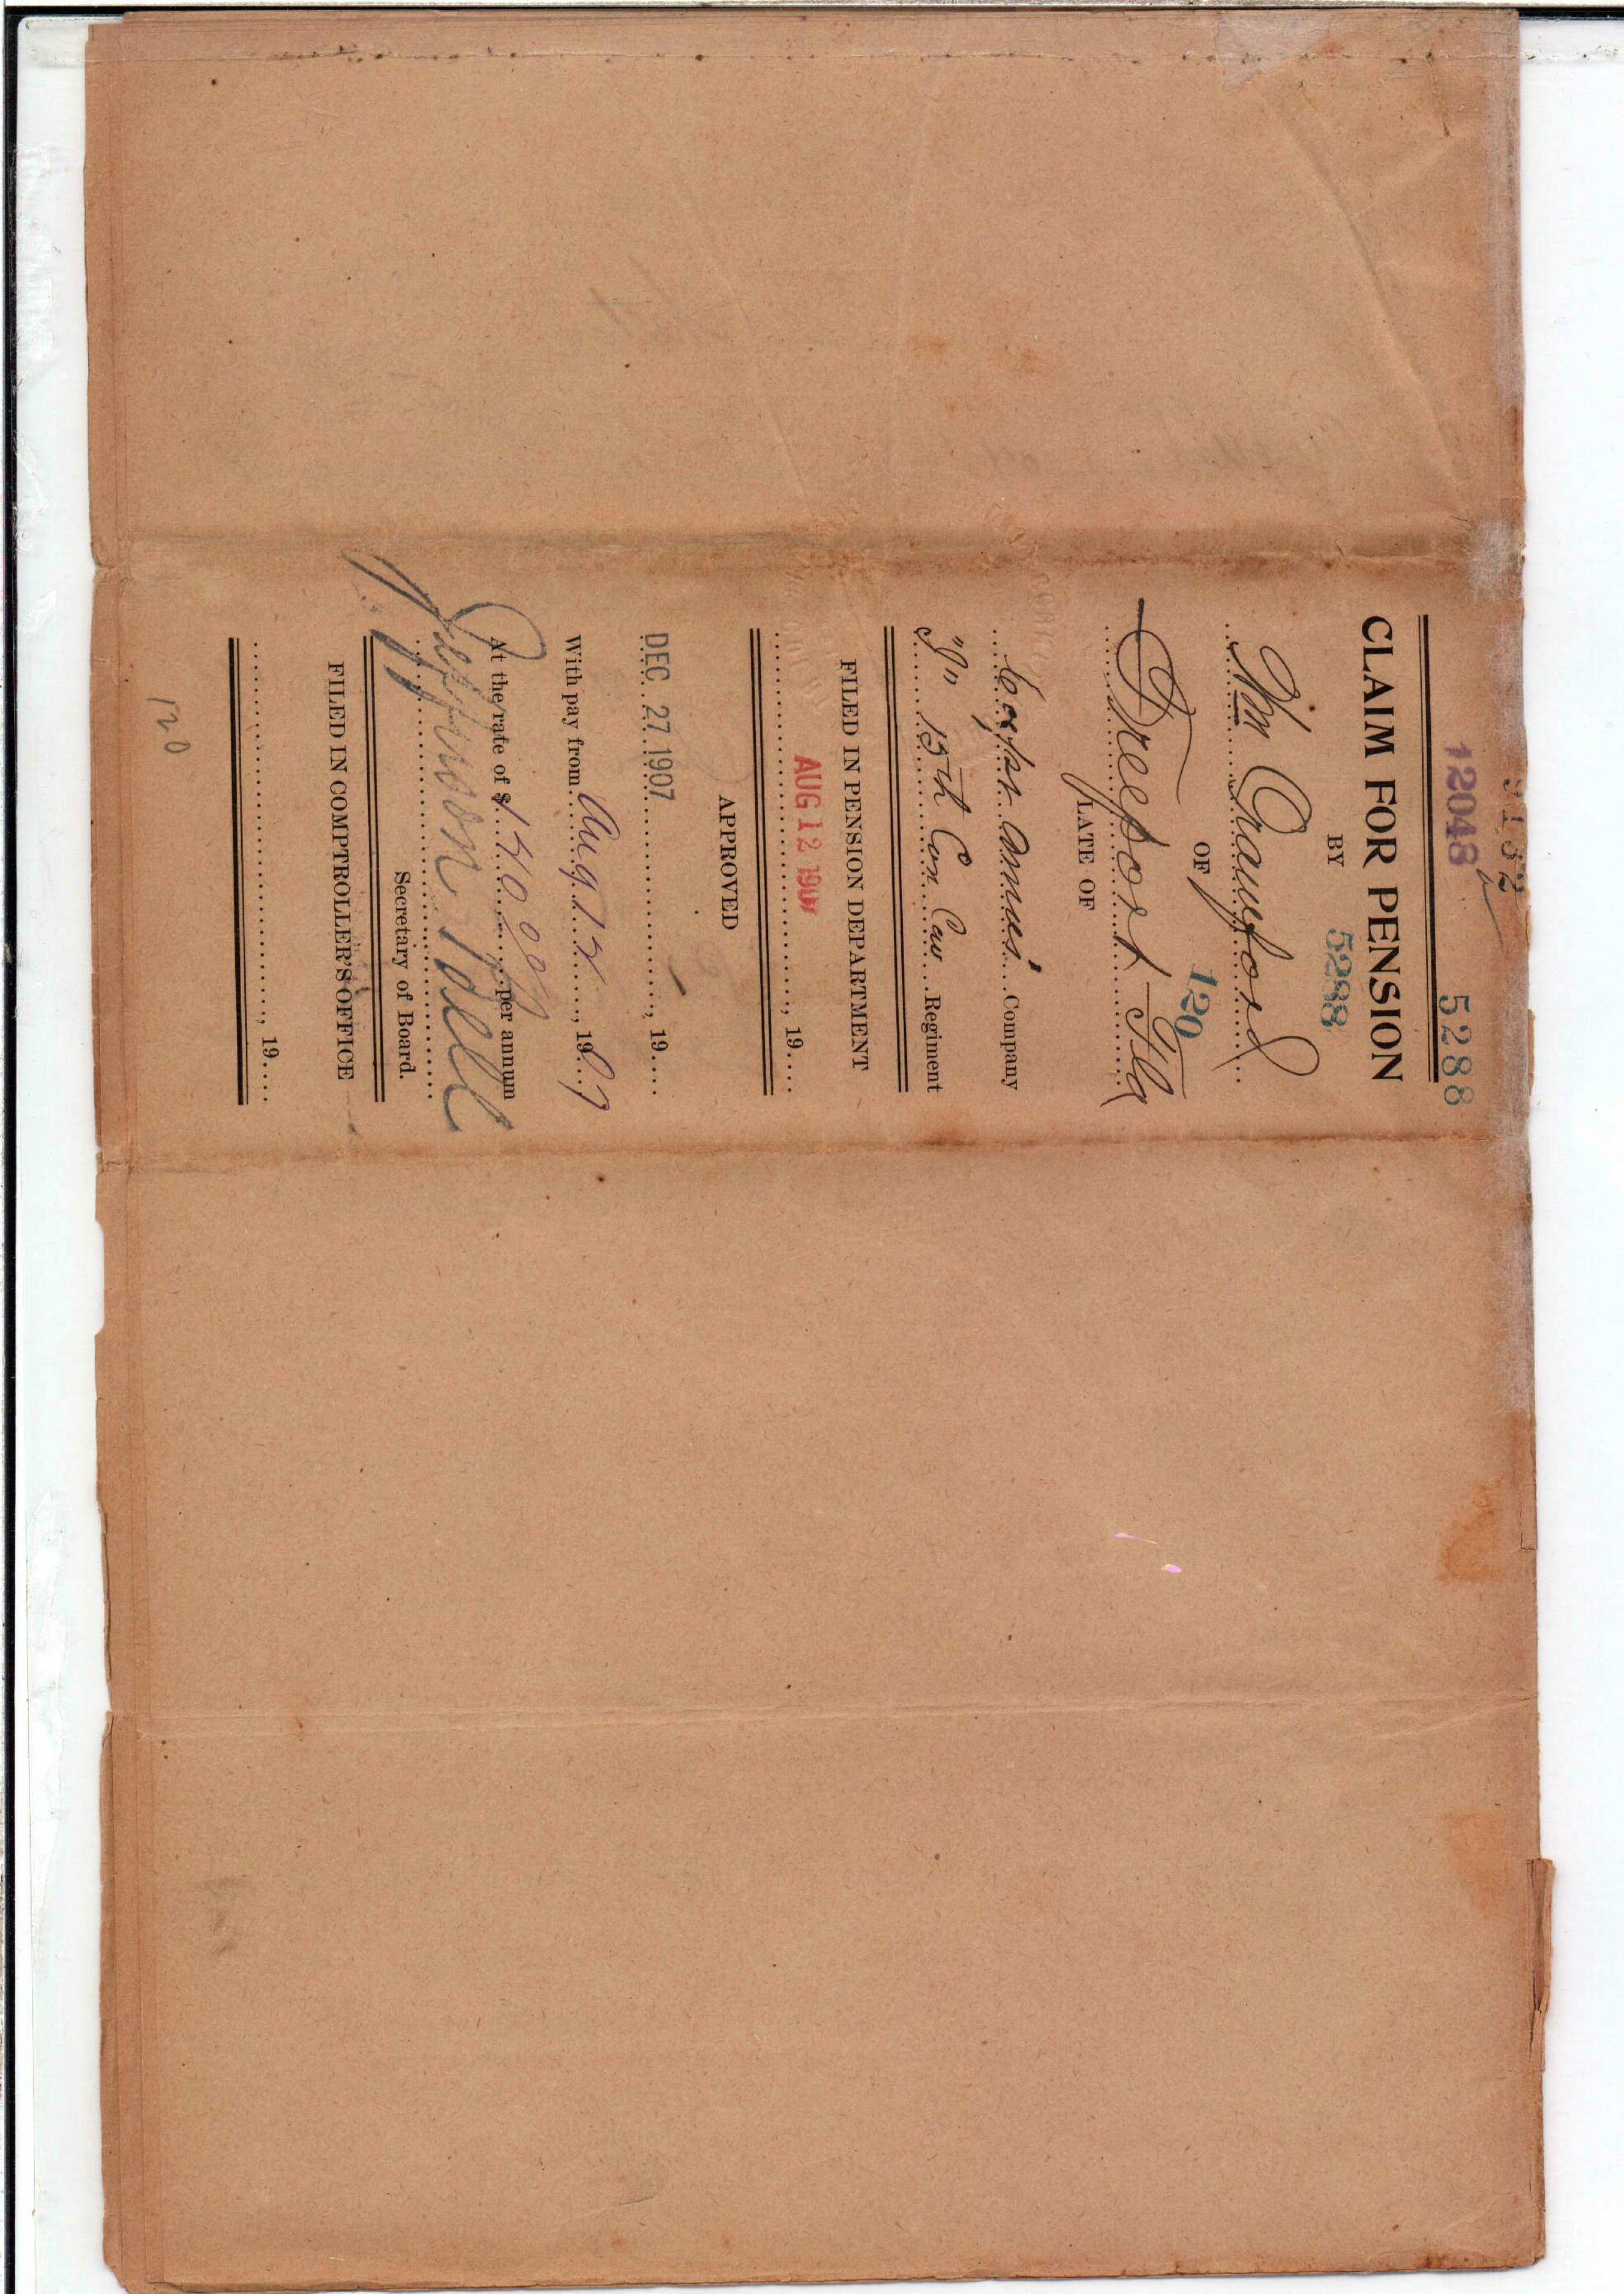 12048
5288
CLAIM FOR PENSION
BY
5288
Wm Crawford
OF
120
Freeport Fla
LATE OF
Company
"I" 15th Con Cav Regiment
FILED IN PENSION DEPARTMENT
AUG 12 1907
, 19
APPROVED
DEC 27 1907 , 19
With pay from Aug 12 , 1907
At the rate of $ 120 00 per annum
Jefferson Bell
Secretary of Board.
FILED IN COMPTROLLER'S OFFICE
, 19
120